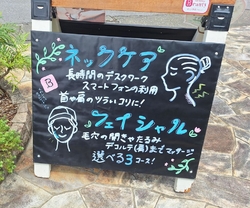 ネックケア
長時間のデスクワーク
スマートフォンの利用
首や肩のツライコリに!
B
フェイシャル
毛穴の開きやたるみ
デコルテ(肩)までマッサージ
選べる3コース!